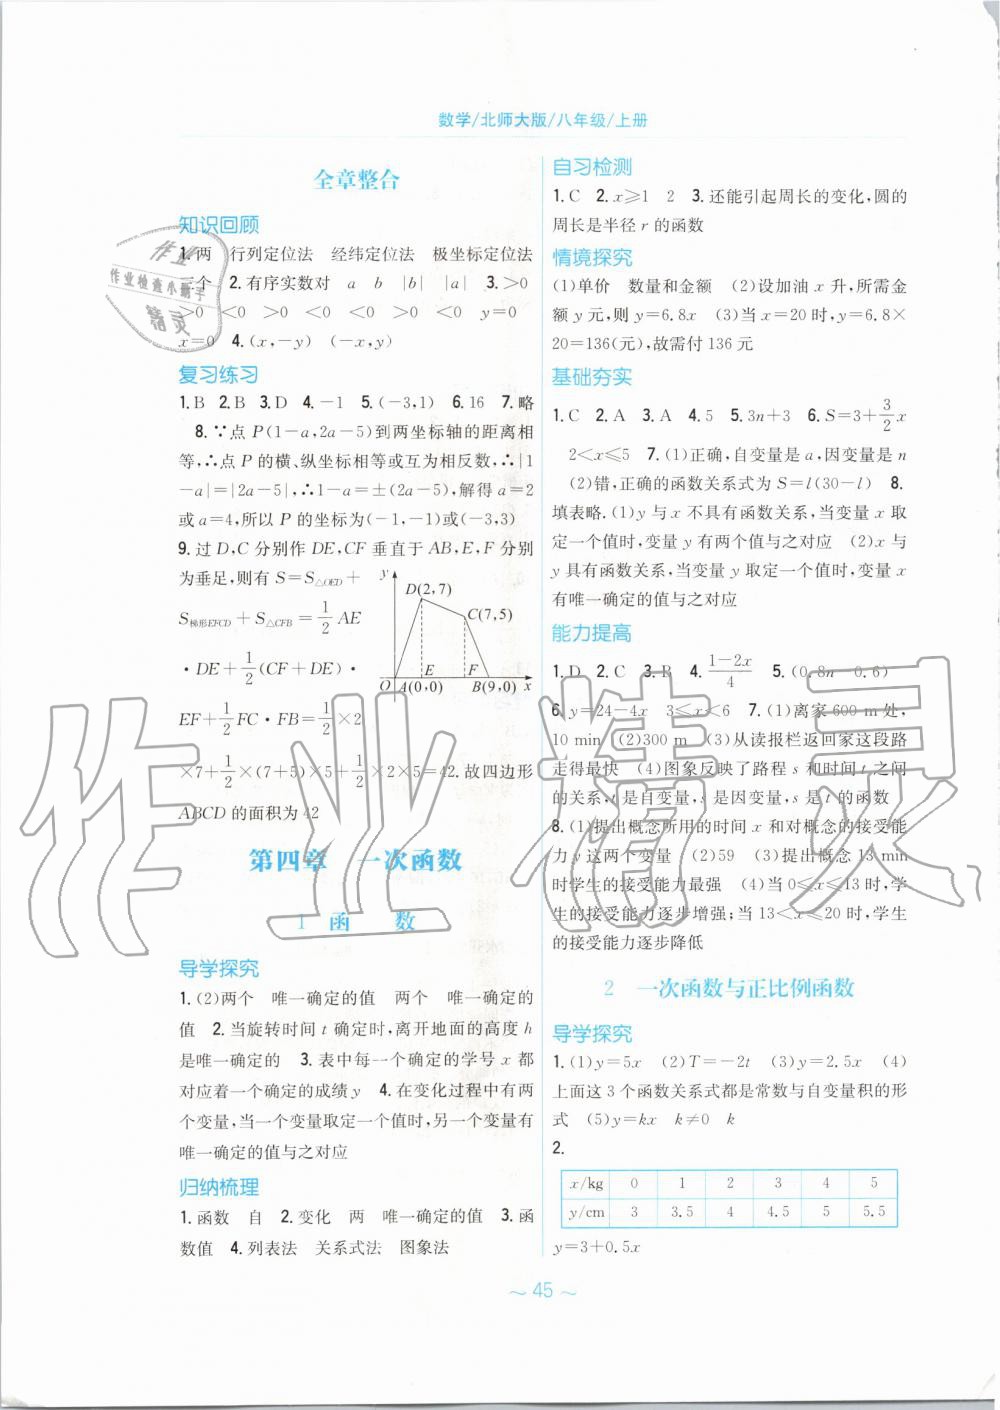 数学/北师大版/八年级/上册
全章整合
知识回顾
1.两 行列定位法 经纬定位法 极坐标定位法
三个 2.有序实数对 a b |b| |a| 3.>0
>0 <0 >0 <0 <0 >0 <0 y=0
x=0 4.(x,-y) (-x,y)
复习练习
1.B 2.B 3.D 4.-1 5.(-3,1) 6.16 7.略
8.∵点 P(1-a,2a-5)到两坐标轴的距离相
等,∴点 P 的横、纵坐标相等或互为相反数,∴|1
-a|=|2a-5|,∴1-a=±(2a-5),解得 a=2
或 a=4,所以 P 的坐标为(-1,-1)或(-3,3)
9.过 D,C 分别作 DE,CF 垂直于 AB,E,F 分别
为垂足,则有 S=S△OED+
S梯形EFCD+S△CFB=1/2 AE
·DE+1/2(CF+DE)·
EF+1/2FC·FB=1/2×2
×7+1/2×(7+5)×5+1/2×2×5=42.故四边形
ABCD 的面积为 42
y
D(2,7)
C(7,5)
E F
O A(0,0) B(9,0) x
第四章 一次函数
1 函 数
导学探究
1.(2)两个 唯一确定的值 两个 唯一确定的
值 2.当旋转时间 t 确定时,离开地面的高度 h
是唯一确定的 3.表中每一个确定的学号 x 都
对应着一个确定的成绩 y 4.在变化过程中有两
个变量,当一个变量取定一个值时,另一个变量有
唯一确定的值与之对应
归纳梳理
1.函数 自 2.变化 两 唯一确定的值 3.函
数值 4.列表法 关系式法 图象法
自习检测
1.C 2.x≥1 2 3.还能引起周长的变化,圆的
周长是半径 r 的函数
情境探究
(1)单价 数量和金额 (2)设加油 x 升,所需金
额 y 元,则 y=6.8x (3)当 x=20 时,y=6.8×
20=136(元),故需付 136 元
基础夯实
1.C 2.A 3.A 4.5 5.3n+3 6.S=3+3/2x
2<x≤5 7.(1)正确,自变量是 a,因变量是 n
(2)错,正确的函数关系式为 S=l(30-l) 8.
填表略.(1)y 与 x 不具有函数关系,当变量 x 取
定一个值时,变量 y 有两个值与之对应 (2)x 与
y 具有函数关系,当变量 y 取定一个值时,变量 x
有唯一确定的值与之对应
能力提高
1.D 2.C 3.B 4.(1-2x)/4 5.(0.8n-0.6)
6.y=24-4x 3≤x<6 7.(1)离家 600 m 处,
10 min (2)300 m (3)从读报栏返回家这段路
走得最快 (4)图象反映了路程 s 和时间 t 之间
的关系,t 是自变量,s 是因变量,s 是 t 的函数
8.(1)提出概念所用的时间 x 和对概念的接受能
力 y 这两个变量 (2)59 (3)提出概念 13 min
时学生的接受能力最强 (4)当 0≤x≤13 时,学
生的接受能力逐步增强;当 13<x≤20 时,学生
的接受能力逐步降低
2 一次函数与正比例函数
导学探究
1.(1)y=5x (2)T=-2t (3)y=2.5x (4)
上面这 3 个函数关系式都是常数与自变量积的形
式 (5)y=kx k≠0 k
2.
x/kg 0 1 2 3 4 5
y/cm 3 3.5 4 4.5 5 5.5
y=3+0.5x
~ 45 ~
作业
作业检查小助手
精灵
作业精灵